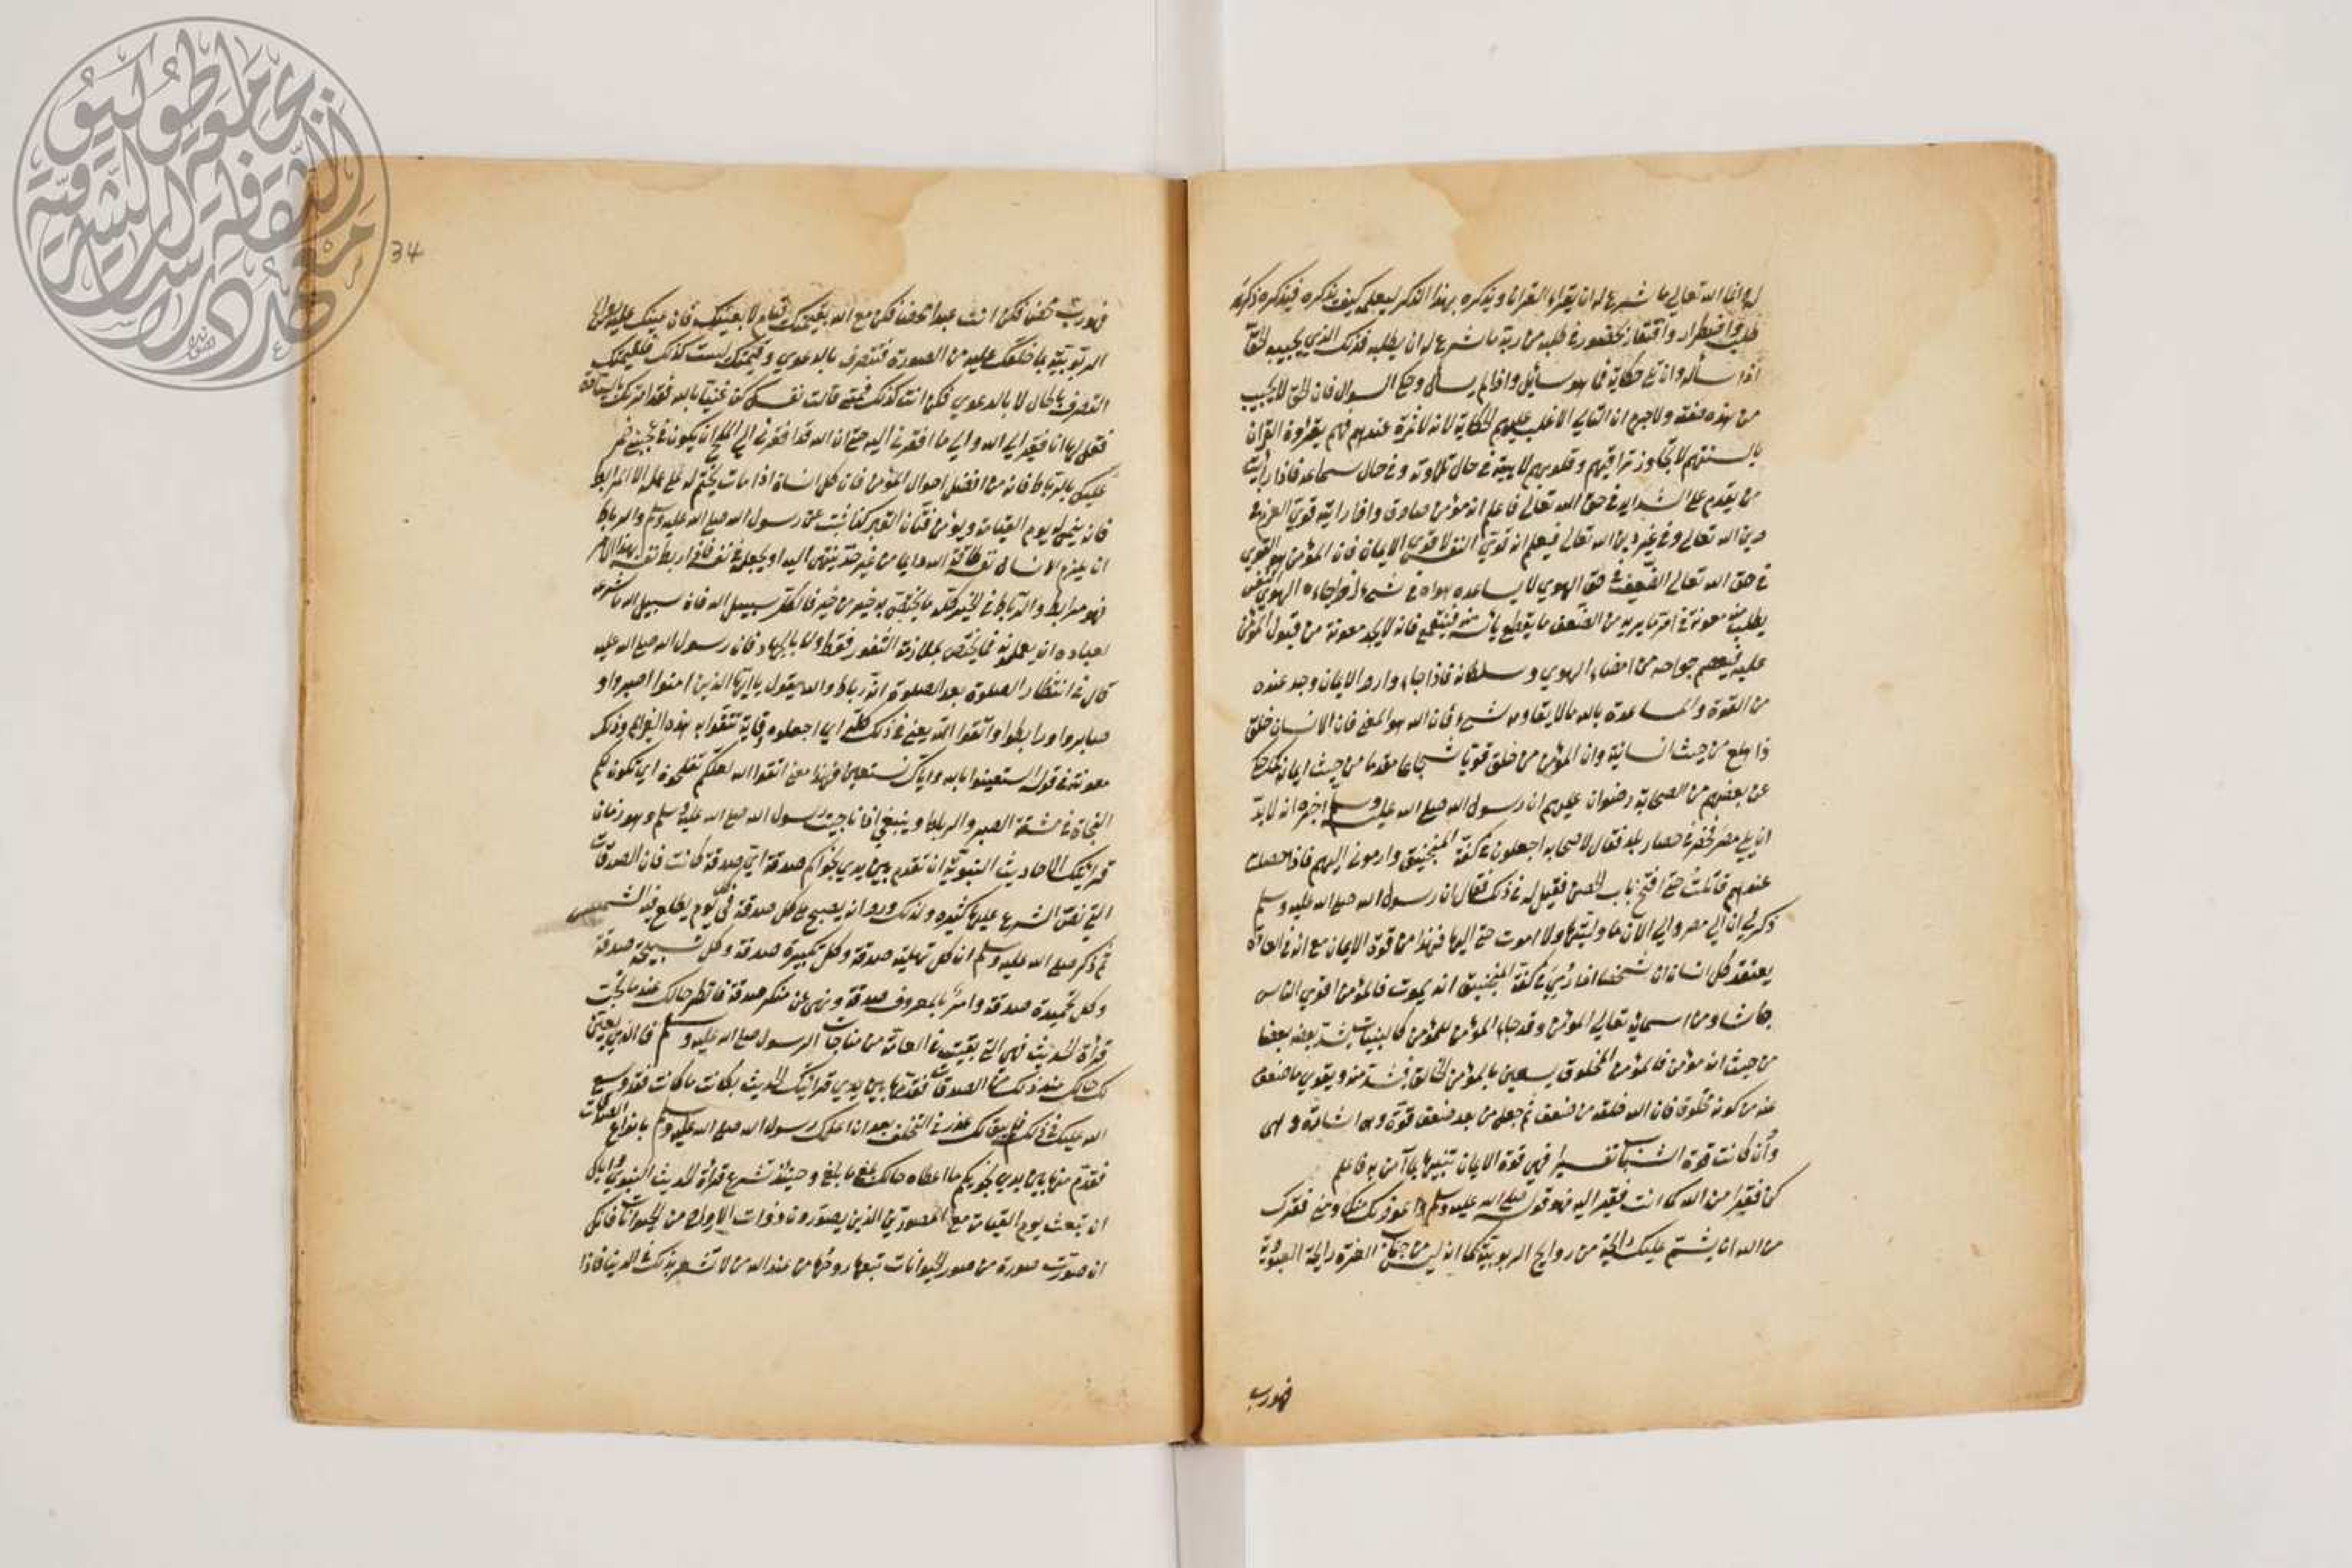 له انما الله تعالى ما شرع له ان يقراء القران ويذكره بهذا الذكر ليعلمه كيف يذكره فيذكره ذكر
طلب واضطرار وافتقار وحضور في طلبه من ربه ما شرع له ان يطلبه فذلك الذي يجيبه الحق
اذا سأله وان تلي حكاية فما هو سائل واذا لم يسأل وحكي السوال فان الحق لا يجيب
من هذه صفته ولا جرم ان التالين الاغلب عليهم الحكاية لانه لا ثمرة عندهم فهم يقرؤن القران
بالسنتهم لا يجاوز تراقيهم وقلوبهم لاهية في حال تلاوته وفي حال سماعه فاذا رأيت
من يقدم على الشدايد في حق الله تعالى فاعلم انه مؤمن صادق واذا رايته قوي العزم في
دين الله تعالى وفي غير دين الله تعالى فيعلم انه قوي النفس لا قوي الايمان فان المؤمن هو القوي
في حق الله تعالى الضعيف في حق الهوي لا يساعده هواه في شيء اذا جاءه الهوي
يطلب منه معونة في امر ما يريه من الضعف ما يقطع يأسه منه فينقمع فانه لا يجد معونة من قبول المؤمن
عليه فيعصم جوارحه من امضاء الهوي وسلطانه فاذا جاءه وارد الايمان وجد عنده
من القوة والمساعدة بالله ما لا يقاومه شيء فان الله هو المعين فان الانسان خلق
ذا هلع من حيث انسانية وان المؤمن من خلق قويا شجاعا مقدما من حيث ايمانه كما حكي
عن بعضهم من الصحابة رضوان عليهم ان رسول الله صلى الله عليه وسلم اخبره انه لا بد
ان يلي مصر فحضر في حصار بلد فقال لاصحابه اجعلوني في كفة المنجنيق وارموني اليهم فاذا حصلت
عندهم قاتلت حتى افتح باب الحصن فقيل له في ذلك فقال ان رسول الله صلى الله عليه وسلم
ذكر لي اني الي مصر والي الان ما وليتها ولا اموت حتى اليها فهذا من قوة الايمان مع انه في العادة
يعتقد كل انسان ان شخصا اذا رمي في كفة المنجنيق انه يموت فالمؤمن اقوي الناس
جاشا ومن اسمائه تعالى المؤمن وقد جاء المؤمن للمؤمن كالبنيان يشد بعضه بعضا
من حيث انه مؤمن فالمؤمن المخلوق يستعين بالمؤمن الخالق فيشد منه ويقوي ما ضعف
عنه من كونه مخلوقا فان الله خلقه من ضعف ثم جعل من بعد ضعف قوة
وان كانت قوة الشباب تفسيرا فهي قوة الايمان تنبيها بما آمن به فاعلم
كن فقيرا من الله كما انت فقير اليه فهو قوله صلى الله عليه وسلم واعوذ بك منك ومعنى فقرك
من الله ان لا يشم عليك رايحة من روايح الربوبية كما انه ليس من جناب العزة رايحة العبودية
فهو رب
34
فهو رب محض فكن انت عبدا محضا فكن مع الله بقيمتك لا بعينك فان عينك عليها روايح
الربوبية بما خلقك عليه من الصورة فتتصرف بالدعوي وقيمتك ليست كذلك فلقيمتك
التصرف بالحال لا بالدعوي فكن انت كذلك فمتى قالت نفسك كن غنيا بالله فقد امرتك بالسيادة
فقل لها انا فقير الي الله والي ما افقرني اليه حتى ان الله قد افقرني الي الملح ان يكون في عجيني ثم
عليك بالرباط فانه من افضل احوال المؤمن فان كل انسان اذا مات يختم له على عمله الا المرابط
فانه ينمى له يوم القيامة ويؤمن فتان القبر كذا ثبت عن رسول الله صلى الله عليه وسلم والرباط
ان يلزم الانسان نفسه طاعة الله دايما من غير حد ينتهي اليه او يجعله في نفسه فاذا ربط نفسه بهذا الامر
فهو مرابط والرباط في الخير كله ما يختص به خير من خير فالكل سبيل الله فان سبيل الله ما شرع
لعباده ان يعملوا به فما يختص بملازمة الثغور فقط ولا بالجهاد فان رسول الله صلى الله عليه
قال في انتظار الصلوة بعد الصلوة انه رباط والله يقول يا ايها الذين امنوا اصبروا و
صابروا ورابطوا واتقوا الله يعني في ذلك كله اي اجعلوه وقاية تتقوا به هذه العزايم وذلك
معونته في قوله استعينوا بالله واياك نستعين فهذا معني اتقوا الله لعلكم تفلحون اي تكون لكم
النجاة في مشقة الصبر والرباط وينبغي اذا ناجيت رسول الله صلى الله عليه وسلم وهو زمان
قراءتك الاحاديث النبوية ان تقدم بين يدي نجواكم صدقة اي صدقة كانت فان الصدقات
التي نص الشرع عليها كثيرة ولذلك ورد انه يصبح على كل صدقة في كل يوم يطلع فيه الشمس
ثم ذكر صلى الله عليه وسلم ان كل تهليلة صدقة وكل تكبيرة صدقة وكل تسبيحة صدقة
وكل تحميدة صدقة وامر بالمعروف صدقة ونهي عن منكر صدقة فانظر حالك عند ما تحب
قرأة الحديث فهي التي بقيت في العامة من مناجات الرسول صلى الله عليه وسلم فالذي يعين
لك حالك عند ذلك من الصدقات فقدمها بين يدي قراءتك الحديث كانت ما كانت فقد وسع
الله عليك في ذلك فلم يبق لك عذر في التخلف بعد ان اعلمك رسول الله صلى الله عليه وسلم بانواع الصدقات
فقدم منها بين يدي نجويكم ما اعطاه حالك بلغ ما بلغ وحينئذ تشرع قرأة الحديث النبوي واياك
ان تبعث يوم القيامة مع المصورين الذين يصورون ذوات الارواح من الحيوانات فانك
ان صورت صورة من صور الحيوانات تبعها روحها من عند الله من لا تشعر بذلك في الدنيا فاذا